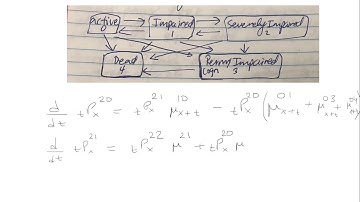 Active Impaired Severely Impaired
0 1 2
Dead Perm Impaired
4 3
d/dt tPx^20 = tPx^21 μx+t^10 - tPx^20 (μx+t^01 + μx+t^03 + μ^04
d/dt tPx^21 = tPx^22 μ^21 + tPx^20 μ